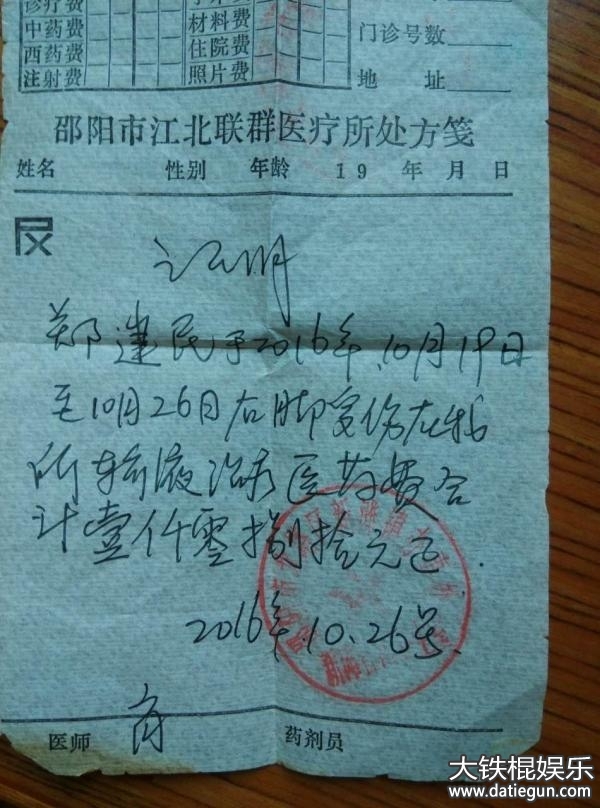 诊疗费
中药费
西药费
注射费
材料费
住院费
照片费
门诊号数
地 址
邵阳市江北联群医疗所处方笺
姓名 性别 年龄 19 年 月 日
证明
郑建民于2016年10月19日
至10月26日右脚受伤在我
所输液治疗医药费合
计壹仟零捌拾元正.
2016年.10.26号.
医师 药剂员
大铁棍娱乐
www.datiegun.com